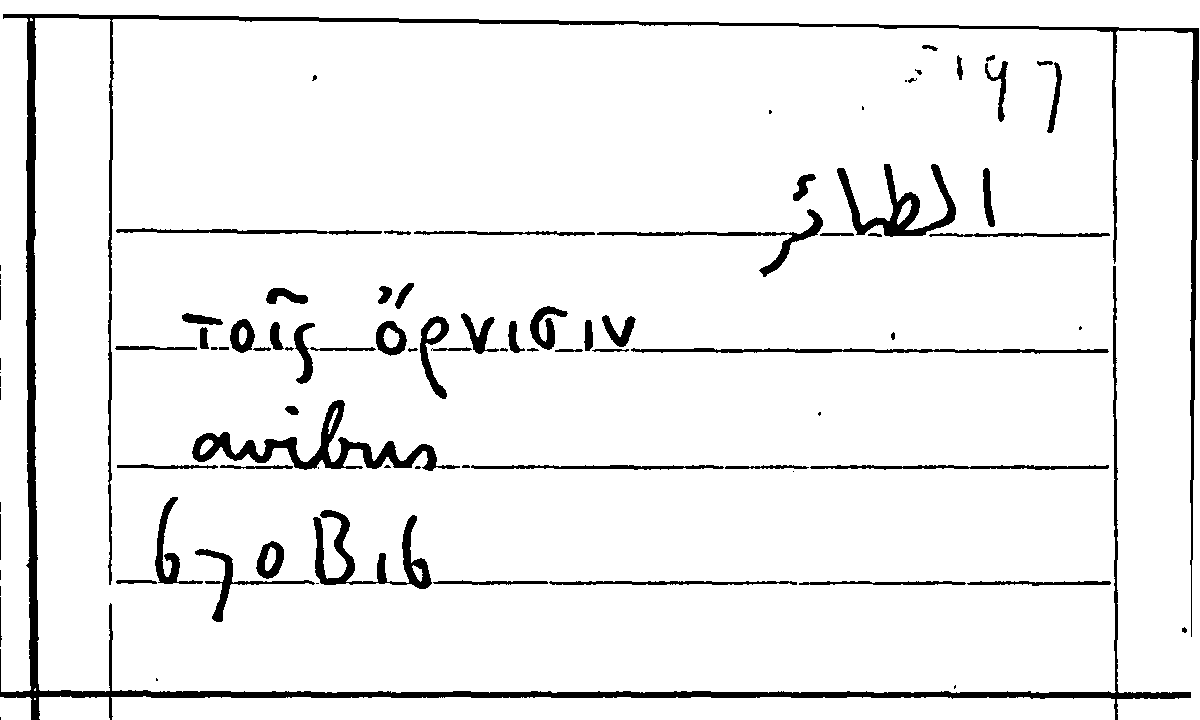 الطائر
τοῖς ὄρνισιν
avibus
670B16